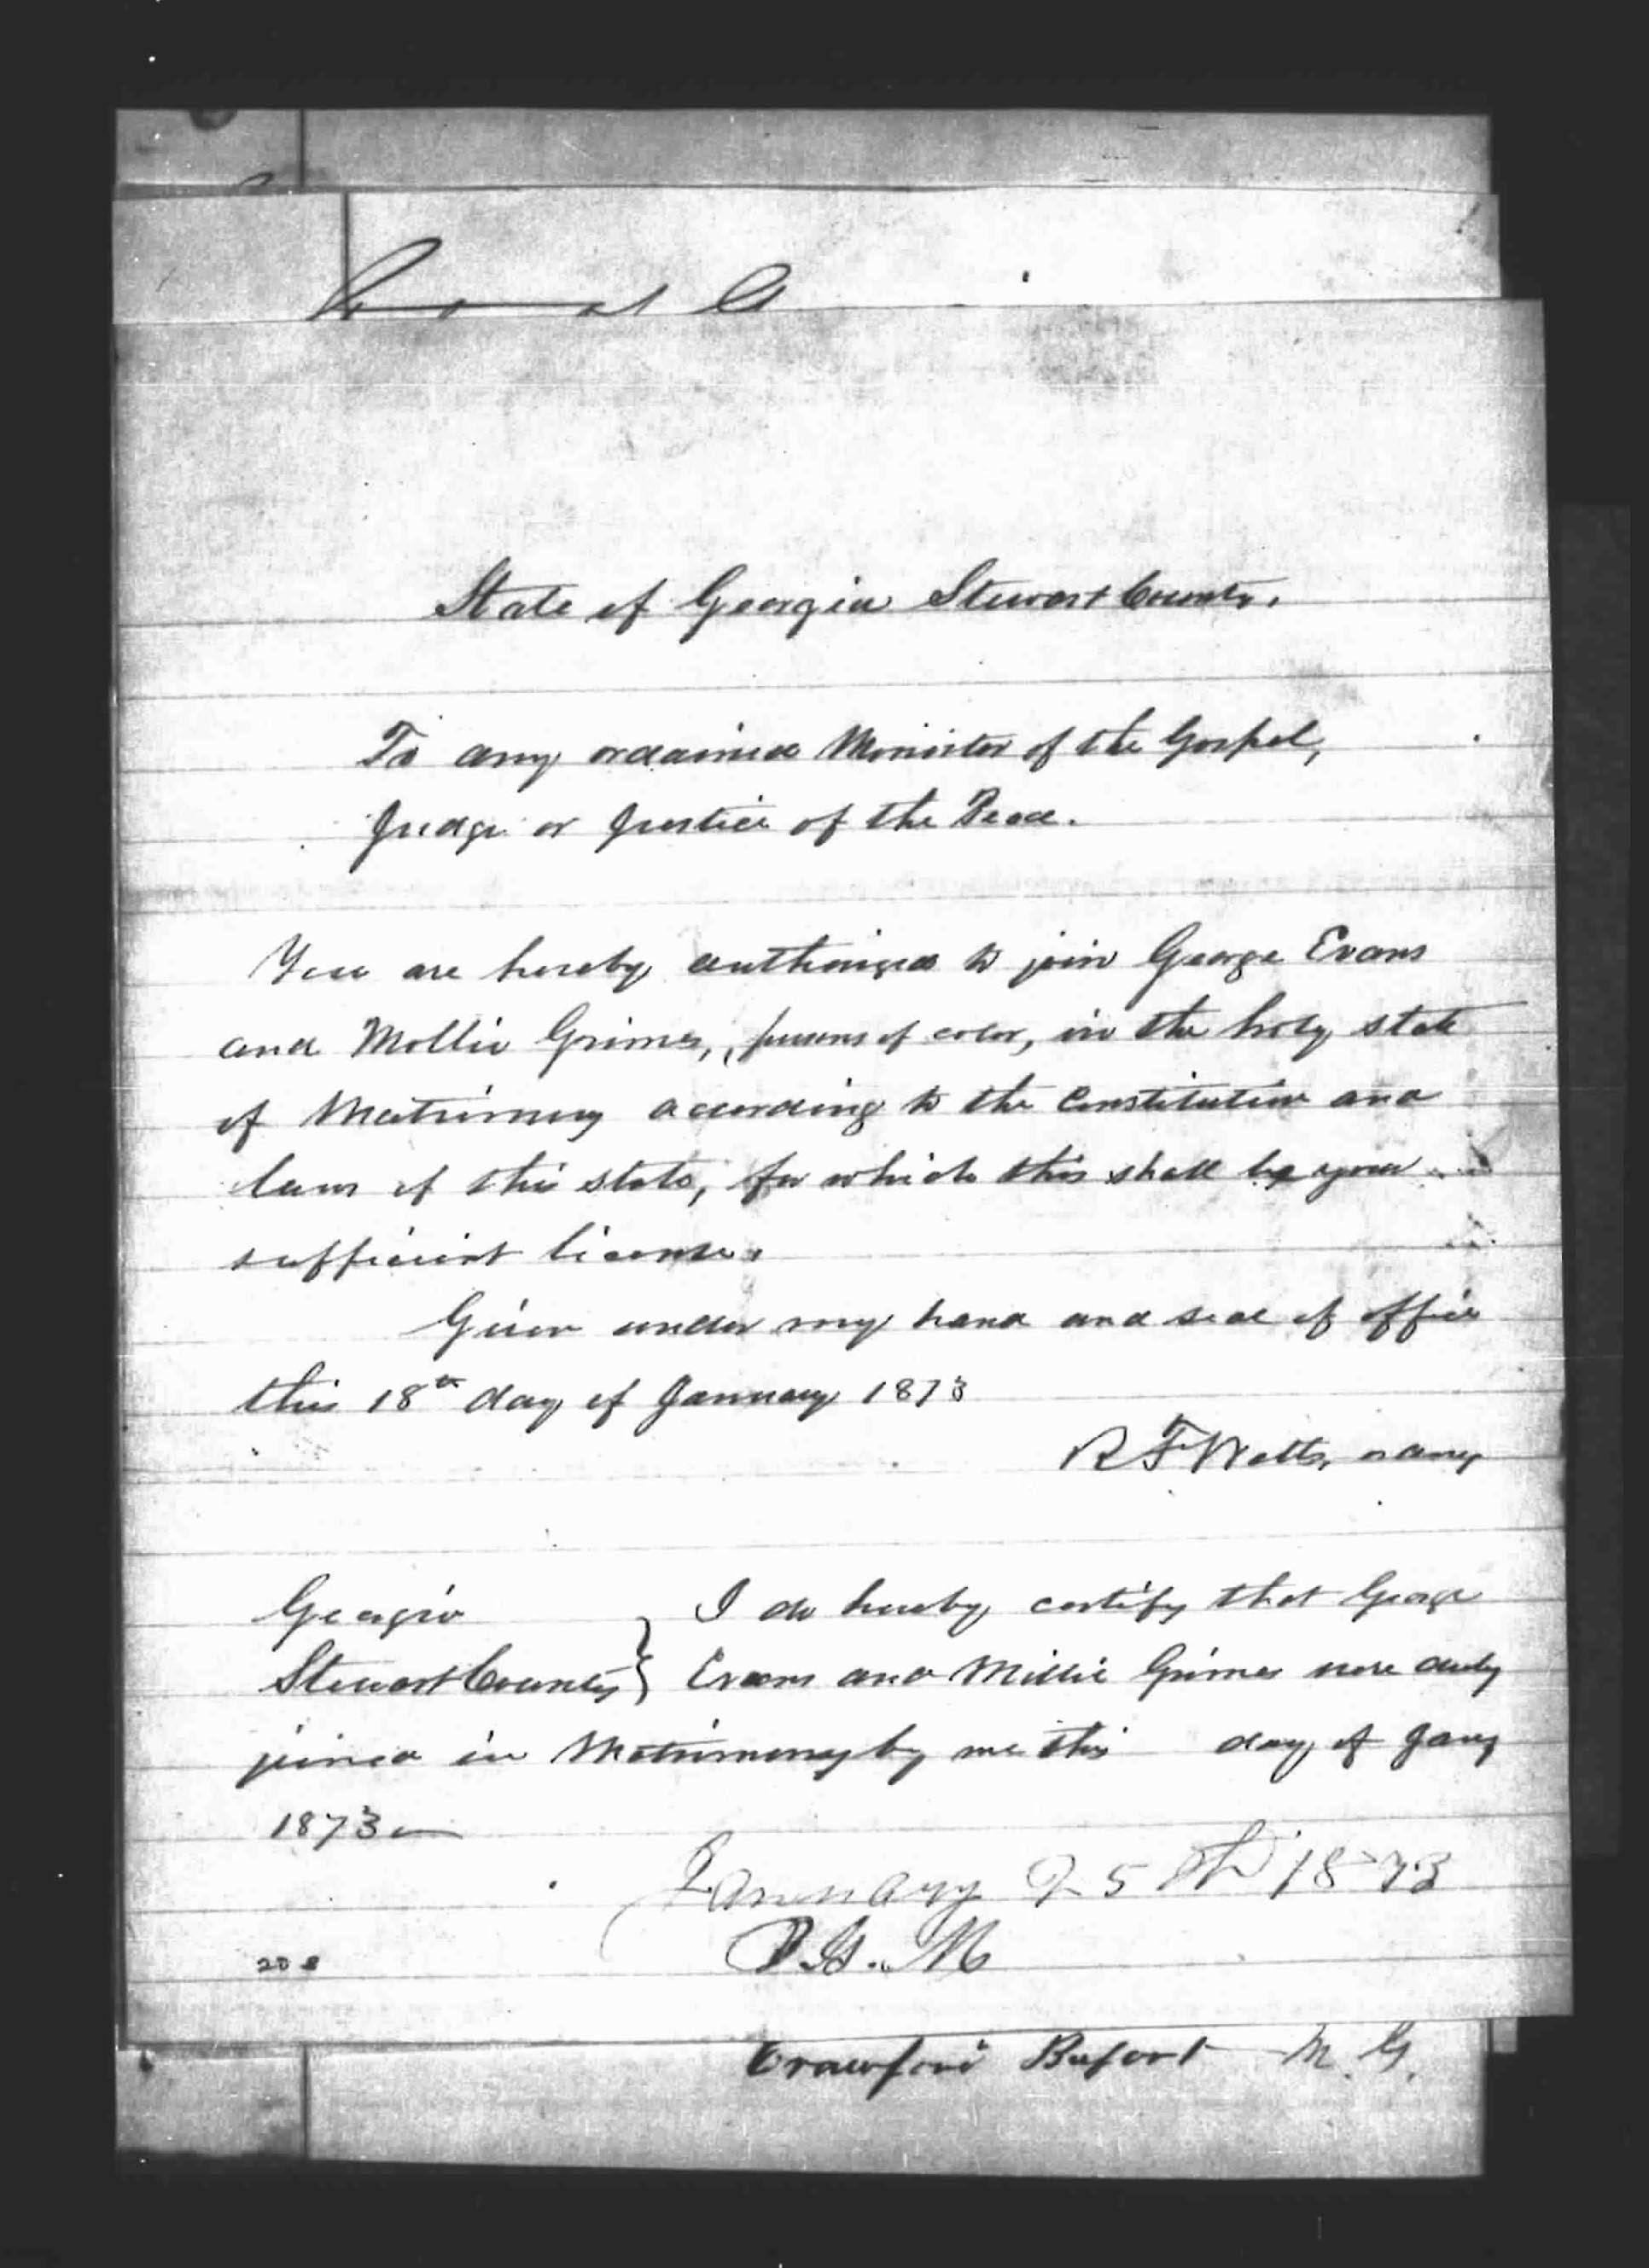 State of Georgia Stewart County.
To any ordained Minister of the Gospel,
Judge or Justice of the Peace.
You are hereby authorized to join George Evans
and Mollie Grimes, persons of color, in the holy state
of Matrimony according to the Constitution and
laws of this state, for which this shall be your
sufficient license.
Given under my hand and seal of office
this 18th day of January 1873
R F Watts, ordny
Georgia } I do hereby certify that George
Stewart County } Evans and Millie Grimes were duly
joined in Matrimony by me this day of Jany
1873
January 25th 1873
20
Crawford Bufort M. G.